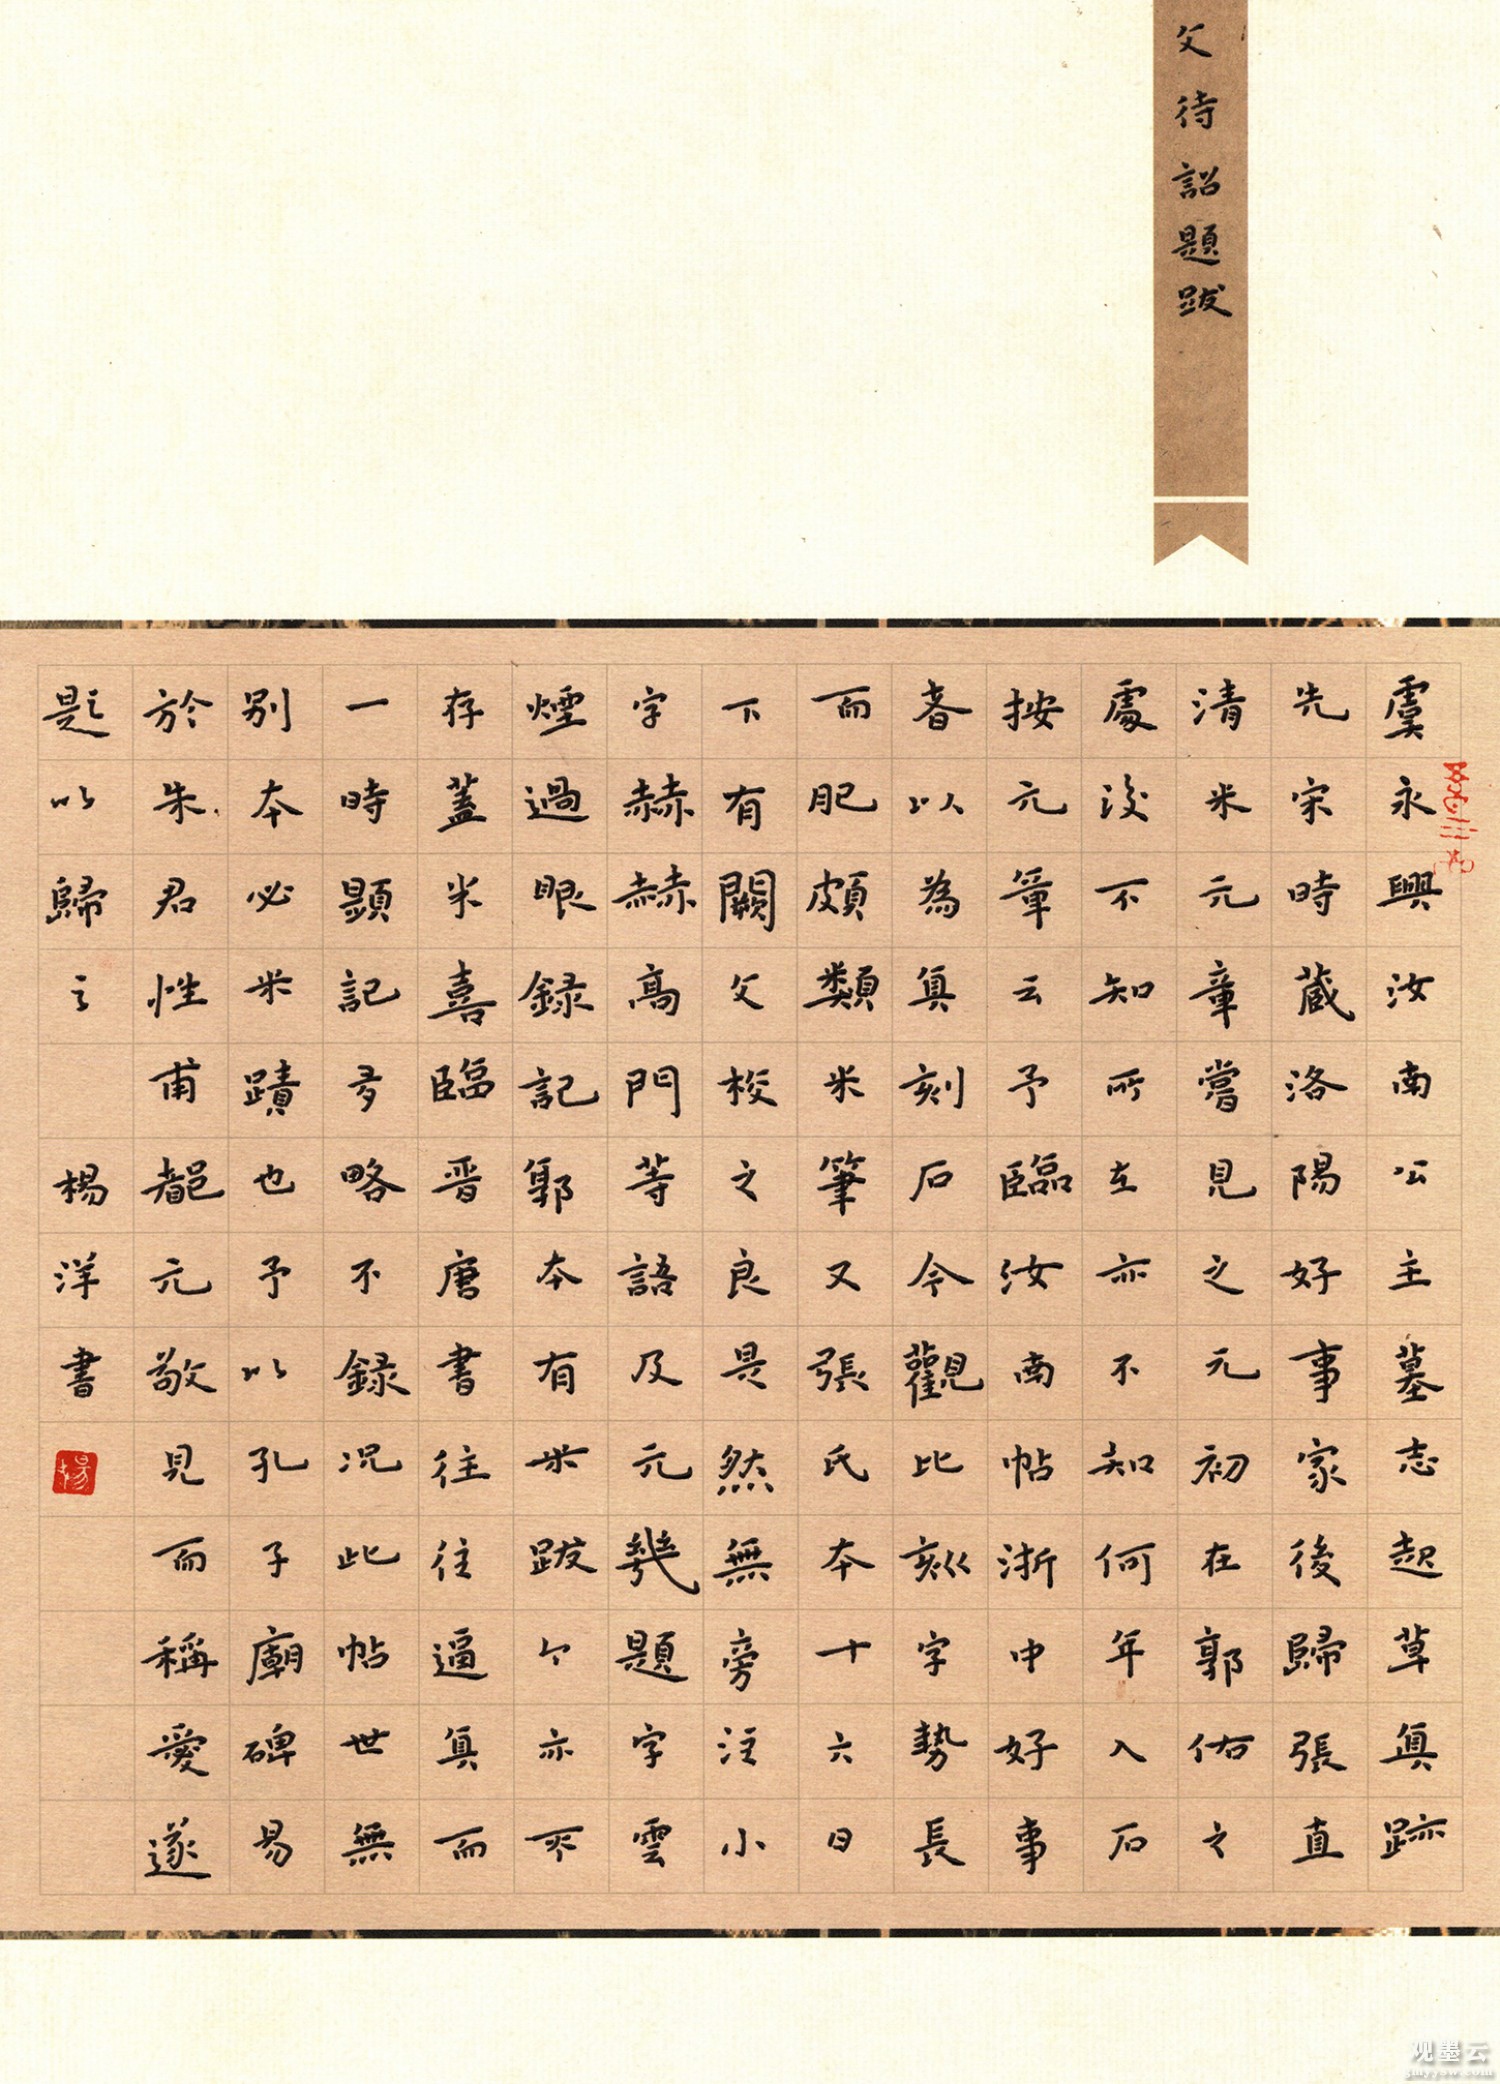 父待詔題跋
虞永興汝南公主墓志起草真跡
先宋時蔵洛陽好事家後歸張直
清米元章嘗見之元初在郭佑之
處後不知所在亦不知何年入石
按元章云予臨汝南帖浙中好事
者以為真刻石今觀比刻字勢長
而肥頗類米筆又張氏本十六日
下有闕父校之良是然無旁注小
字赫赫高門等語及元幾題字雲
煙過眼録記郭本有米跋今亦不
存蓋米喜臨晋唐書往往逼真而
一時題記多略不録况此帖世無
別本必米蹟也予以孔子廟碑易
於朱君性甫都元敬見而稱愛遂
題以歸之 楊洋書
楊
观墨云